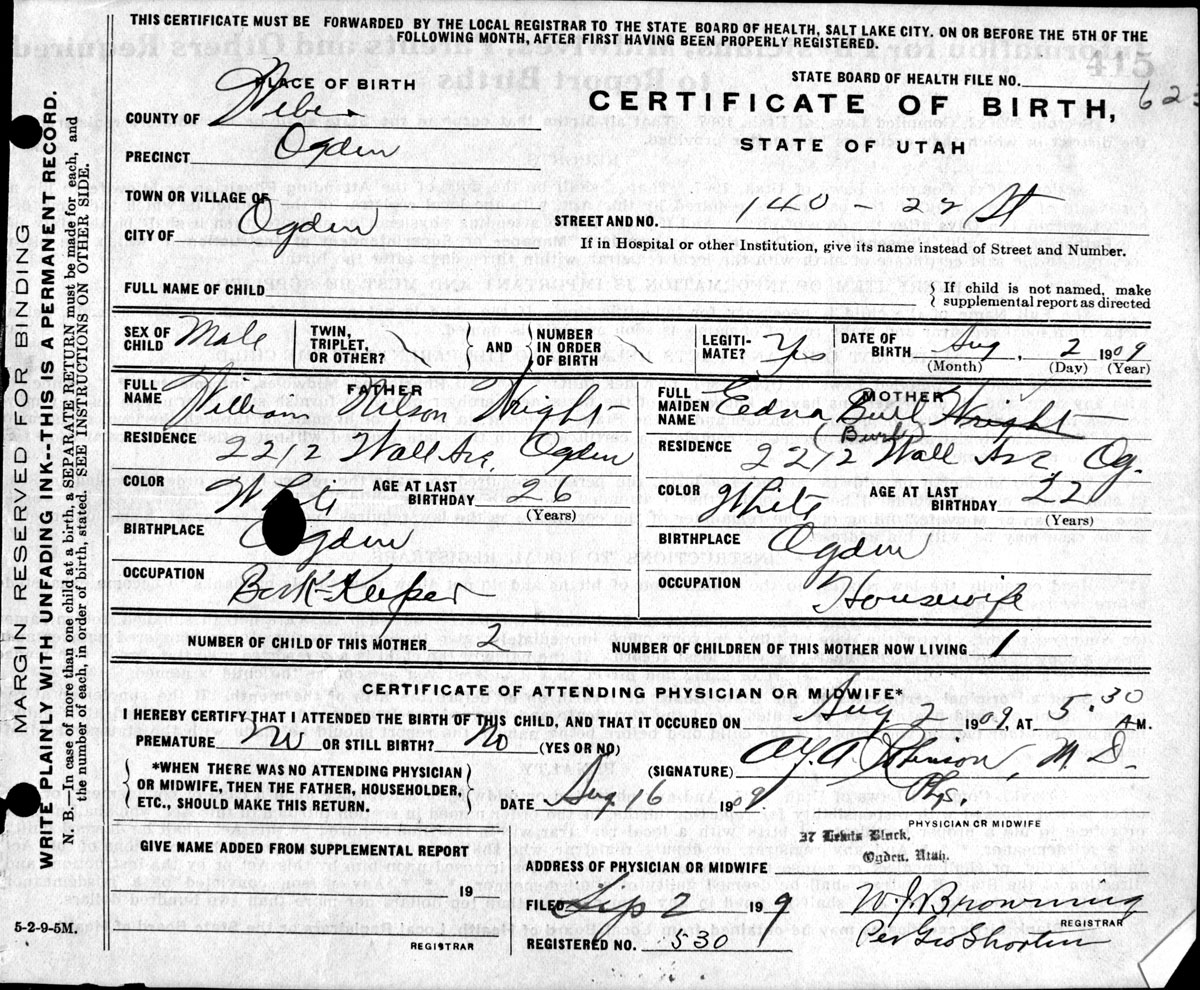 THIS CERTIFICATE MUST BE FORWARDED BY THE LOCAL REGISTRAR TO THE STATE BOARD OF HEALTH, SALT LAKE CITY. ON OR BEFORE THE 5TH OF THE
FOLLOWING MONTH, AFTER FIRST HAVING BEEN PROPERLY REGISTERED.
MARGIN RESERVED FOR BINDING
WRITE PLAINLY WITH UNFADING INK--THIS IS A PERMANENT RECORD.
N. B.—In case of more than one child at a birth, a SEPARATE RETURN must be made for each, and
the number of each, in order of birth, stated. SEE INSTRUCTIONS ON OTHER SIDE.
PLACE OF BIRTH
STATE BOARD OF HEALTH FILE NO.
CERTIFICATE OF BIRTH,
STATE OF UTAH
COUNTY OF
PRECINCT Ogden
TOWN OR VILLAGE OF
CITY OF Ogden
STREET AND NO. 140 - 22 St
If in Hospital or other Institution, give its name instead of Street and Number.
FULL NAME OF CHILD { If child is not named, make
supplemental report as directed
SEX OF CHILD Male TWIN, TRIPLET, OR OTHER? { AND } NUMBER IN ORDER OF BIRTH LEGITIMATE? Yes DATE OF BIRTH Aug, 2 1909
(Month) (Day) (Year)
FATHER
FULL NAME William Wilson Wright
RESIDENCE 2212 Wall Ave, Ogden
COLOR White AGE AT LAST BIRTHDAY 26
(Years)
BIRTHPLACE Ogden
OCCUPATION Book-Keeper
MOTHER
FULL MAIDEN NAME Wright
RESIDENCE 2212 Wall Ave, Og.
COLOR White AGE AT LAST BIRTHDAY 22
(Years)
BIRTHPLACE Ogden
OCCUPATION Housewife
NUMBER OF CHILD OF THIS MOTHER 2 NUMBER OF CHILDREN OF THIS MOTHER NOW LIVING 1
CERTIFICATE OF ATTENDING PHYSICIAN OR MIDWIFE*
I HEREBY CERTIFY THAT I ATTENDED THE BIRTH OF THIS CHILD, AND THAT IT OCCURED ON Aug 2 1909, AT 5.30 A M.
PREMATURE No OR STILL BIRTH? No (YES OR NO)
{ *WHEN THERE WAS NO ATTENDING PHYSICIAN
OR MIDWIFE, THEN THE FATHER, HOUSEHOLDER,
ETC., SHOULD MAKE THIS RETURN. }
(SIGNATURE) M. D.
DATE Aug 16 1909 Phys.
PHYSICIAN OR MIDWIFE
37 Lewis Block,
Ogden, Utah.
GIVE NAME ADDED FROM SUPPLEMENTAL REPORT
ADDRESS OF PHYSICIAN OR MIDWIFE
19
REGISTRAR
FILED Sep 2 199 W. J. Browning
REGISTRAR
REGISTERED NO. 530 Per Geo Shorten
5-2-9-5M.